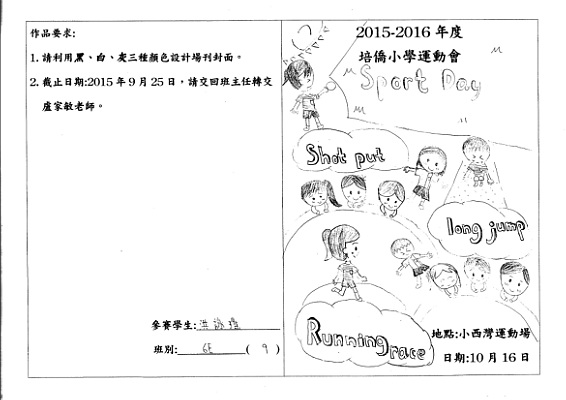 作品要求:
1. 請利用黑、白、灰三種顏色設計場刊封面。
2. 截止日期:2015年9月25日，請交回班主任轉交
盧家敏老師。
參賽學生:
班別: 6E ( 9 )
2015-2016 年度
培僑小學運動會
Sport Day
Shot put
long jump
Running race
地點:小西灣運動場
日期:10月16日